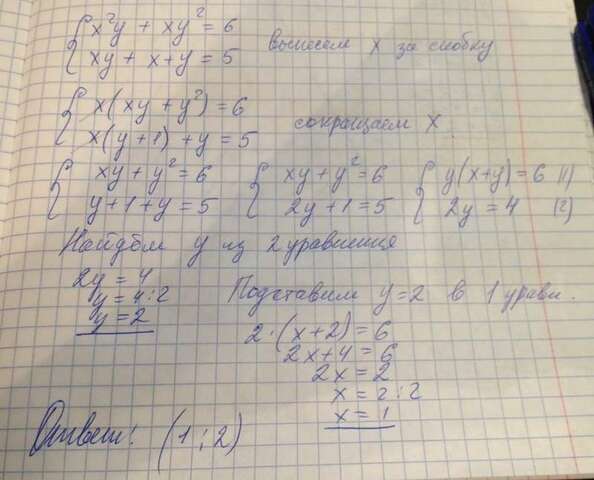 { x²y + xy² = 6
{ xy + x + y = 5 вынесем x за скобку
{ x(xy + y²) = 6
{ x(y + 1) + y = 5 сокращаем x
{ xy + y² = 6 { xy + y² = 6 { y(x+y) = 6 (1)
{ y + 1 + y = 5 { 2y + 1 = 5 { 2y = 4 (2)
Найдём y из 2 уравнения
2y = 4
y = 4:2
y = 2
Подставим y = 2 в 1 уравн.
2·(x+2) = 6
2x + 4 = 6
2x = 2
x = 2:2
x = 1
Ответ: (1; 2)